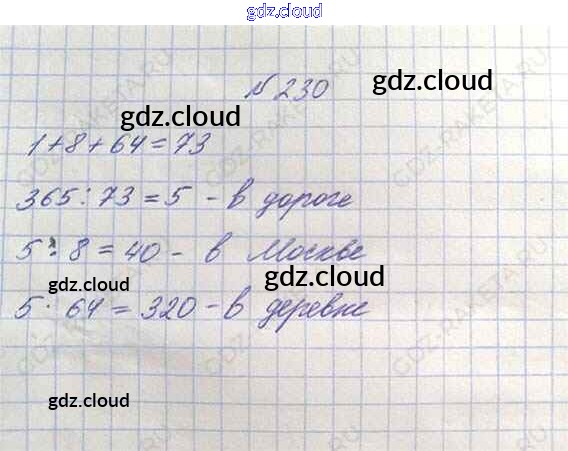 gdz.cloud
№ 230
gdz.cloud
gdz.cloud
1+8+64=73
365:73=5 - в дороге
5·8=40 - в Москве
gdz.cloud
gdz.cloud
5·64=320 - в деревне
gdz.cloud